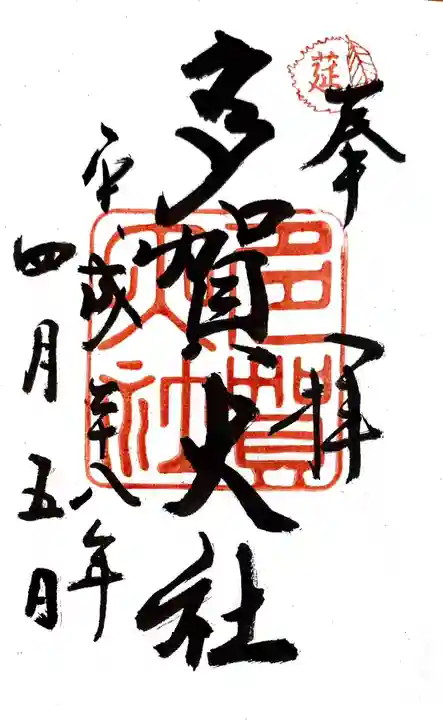 莚
奉拝
多賀大社
多賀
大社
平成二十八年
四月五日